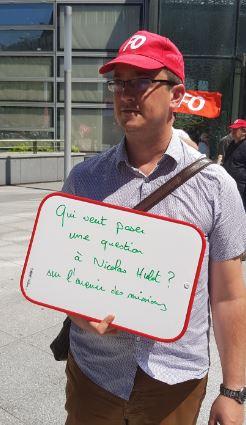 FO
FO
Qui veut poser
une question
à Nicolas Hulot ?
sur l'avenir des missions